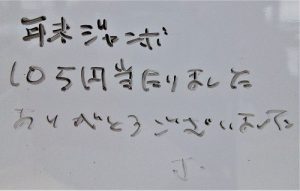 年末ジャンボ
105円当たりました
ありがとうございました